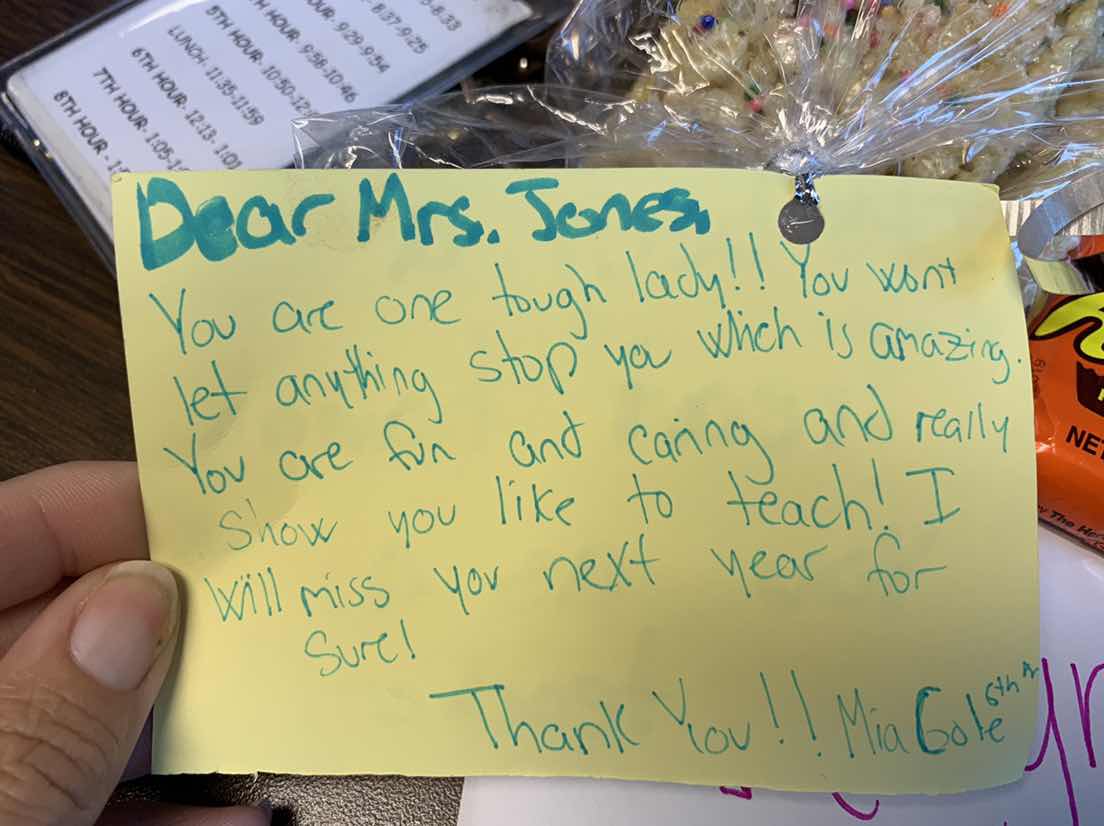 8:37-9:25
HOUR: 9:29-9:54
HOUR: 9:58-10:46
5TH HOUR: 10:50-
LUNCH: 11:35-11:59
6TH HOUR: 12:13-1:01
7TH HOUR: 1:05-1
8TH HOUR - 1
Dear Mrs. Jones,
You are one tough lady!! You wont
let anything stop you which is amazing.
You are fun and caring and really
Show you like to teach! I
will miss you next year for
sure!
Thank You!! Mia Cole 6th
NET
The